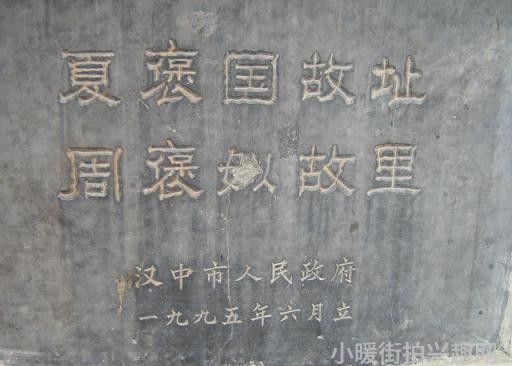 夏褒国故址
周褒姒故里
汉中市人民政府
一九九五年六月立
小暖街拍兴趣网